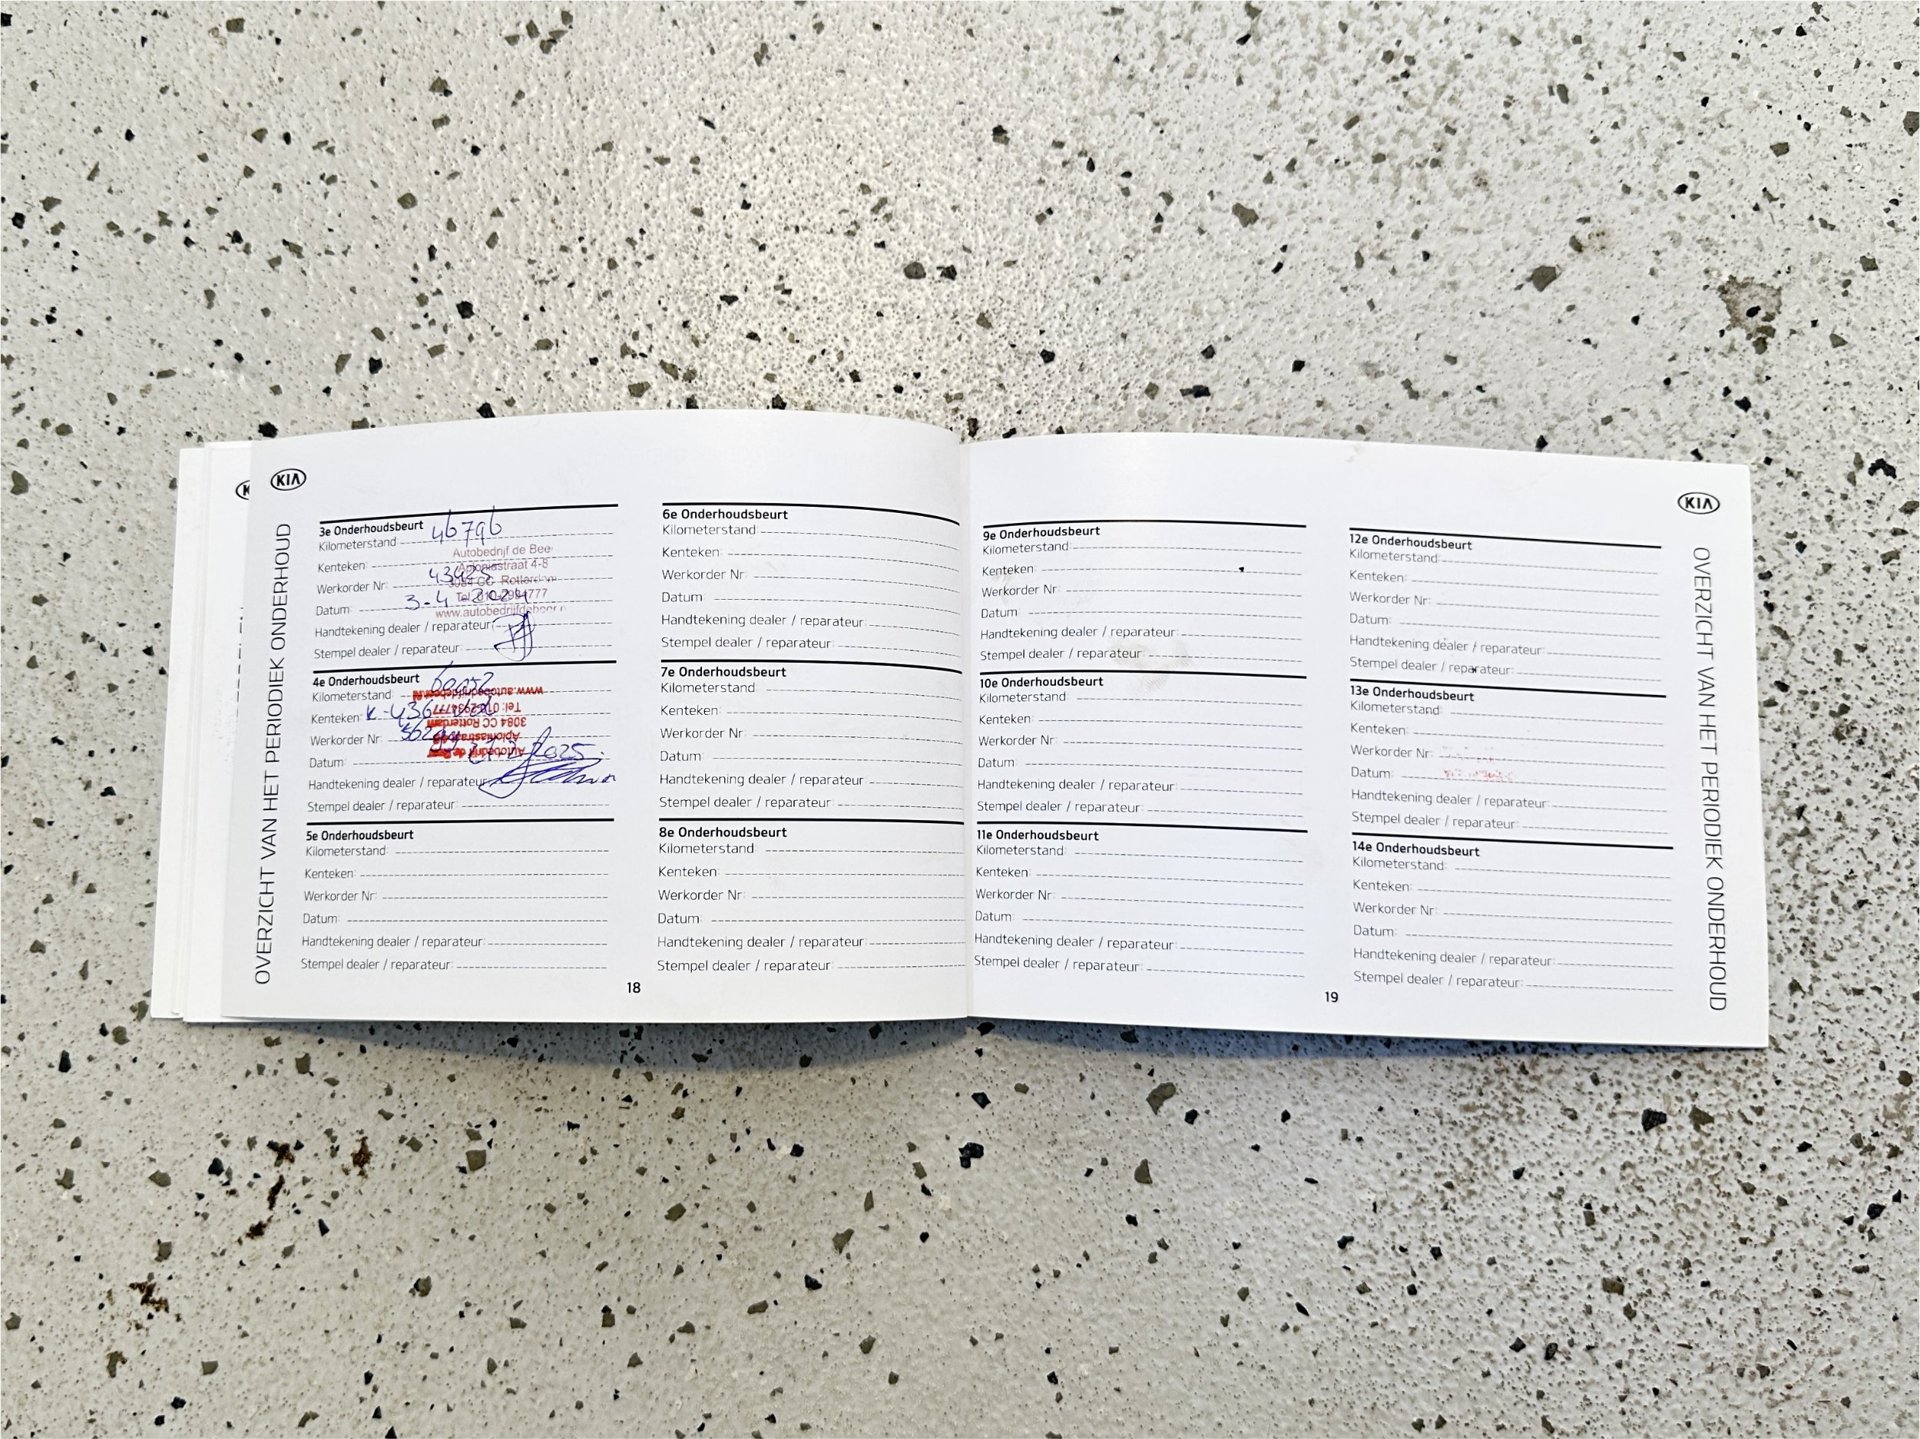 KIA
OVERZICHT VAN HET PERIODIEK ONDERHOUD
3e Onderhoudsbeurt
Kilometerstand 46796
Kenteken:
Werkorder Nr:
Datum: 3-4-2024
Handtekening dealer / reparateur:
Stempel dealer / reparateur:
Autobedrijf de Bee
Aploniastraat 4-8
3084 CC Rotterdam
4e Onderhoudsbeurt
Kilometerstand:
Kenteken:
Werkorder Nr:
Datum: 2025
Handtekening dealer / reparateur:
Stempel dealer / reparateur:
3084 CC Rotterdam
5e Onderhoudsbeurt
Kilometerstand:
Kenteken:
Werkorder Nr:
Datum:
Handtekening dealer / reparateur:
Stempel dealer / reparateur:
6e Onderhoudsbeurt
Kilometerstand:
Kenteken:
Werkorder Nr:
Datum:
Handtekening dealer / reparateur:
Stempel dealer / reparateur:
7e Onderhoudsbeurt
Kilometerstand:
Kenteken:
Werkorder Nr:
Datum:
Handtekening dealer / reparateur:
Stempel dealer / reparateur:
8e Onderhoudsbeurt
Kilometerstand:
Kenteken:
Werkorder Nr:
Datum:
Handtekening dealer / reparateur:
Stempel dealer / reparateur:
18
9e Onderhoudsbeurt
Kilometerstand:
Kenteken:
Werkorder Nr:
Datum:
Handtekening dealer / reparateur:
Stempel dealer / reparateur:
10e Onderhoudsbeurt
Kilometerstand:
Kenteken:
Werkorder Nr:
Datum:
Handtekening dealer / reparateur:
Stempel dealer / reparateur:
11e Onderhoudsbeurt
Kilometerstand:
Kenteken:
Werkorder Nr:
Datum:
Handtekening dealer / reparateur:
Stempel dealer / reparateur:
12e Onderhoudsbeurt
Kilometerstand:
Kenteken:
Werkorder Nr:
Datum:
Handtekening dealer / reparateur:
Stempel dealer / reparateur:
13e Onderhoudsbeurt
Kilometerstand:
Kenteken:
Werkorder Nr:
Datum:
Handtekening dealer / reparateur:
Stempel dealer / reparateur:
14e Onderhoudsbeurt
Kilometerstand:
Kenteken:
Werkorder Nr:
Datum:
Handtekening dealer / reparateur:
Stempel dealer / reparateur:
19
KIA
OVERZICHT VAN HET PERIODIEK ONDERHOUD